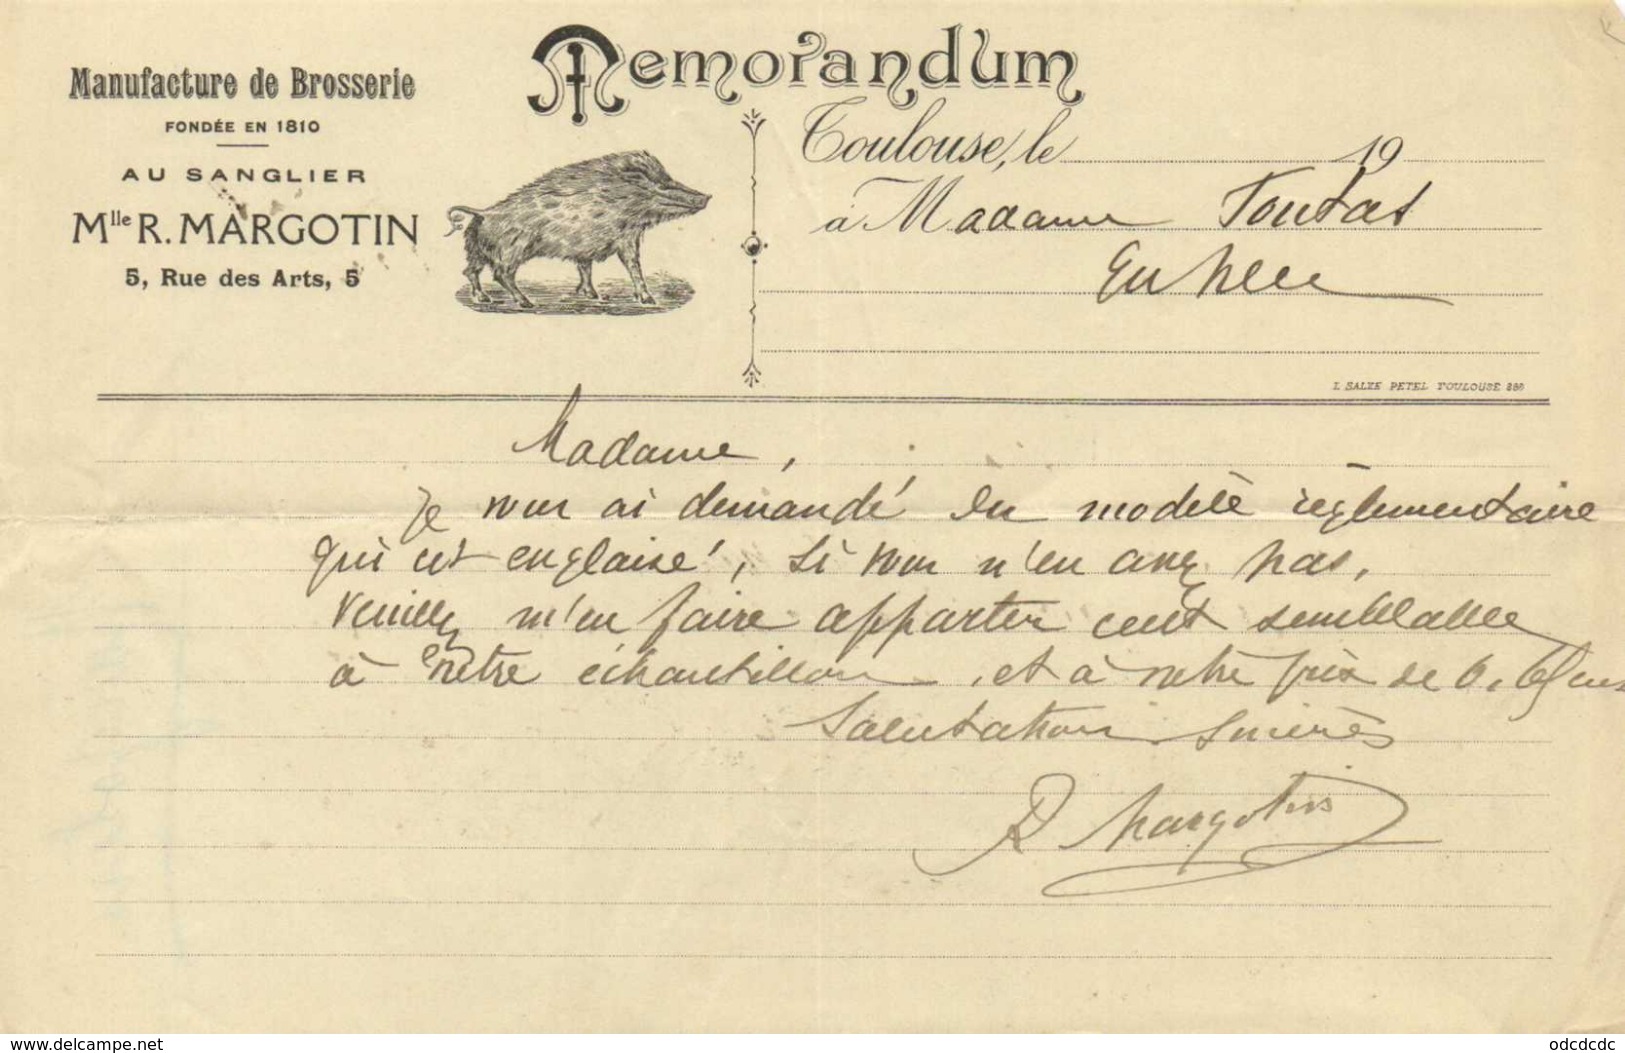 Memorandum
Manufacture de Brosserie
FONDÉE EN 1810
AU SANGLIER
Mlle R. MARGOTIN
5, Rue des Arts, 5
Toulouse, le 19
à Madame Toutat
En Ville
I. SALZE PETEL TOULOUSE 286
Madame,
Je vous ai demandé du modèle règlementaire
qui est englaisé, si vous n'en avez pas,
veuillez m'en faire apporter cent semblable
à votre échantillon, et à votre prix de 0.65
Salutations sincères
R Margotin
www.delcampe.net
odcdcdc